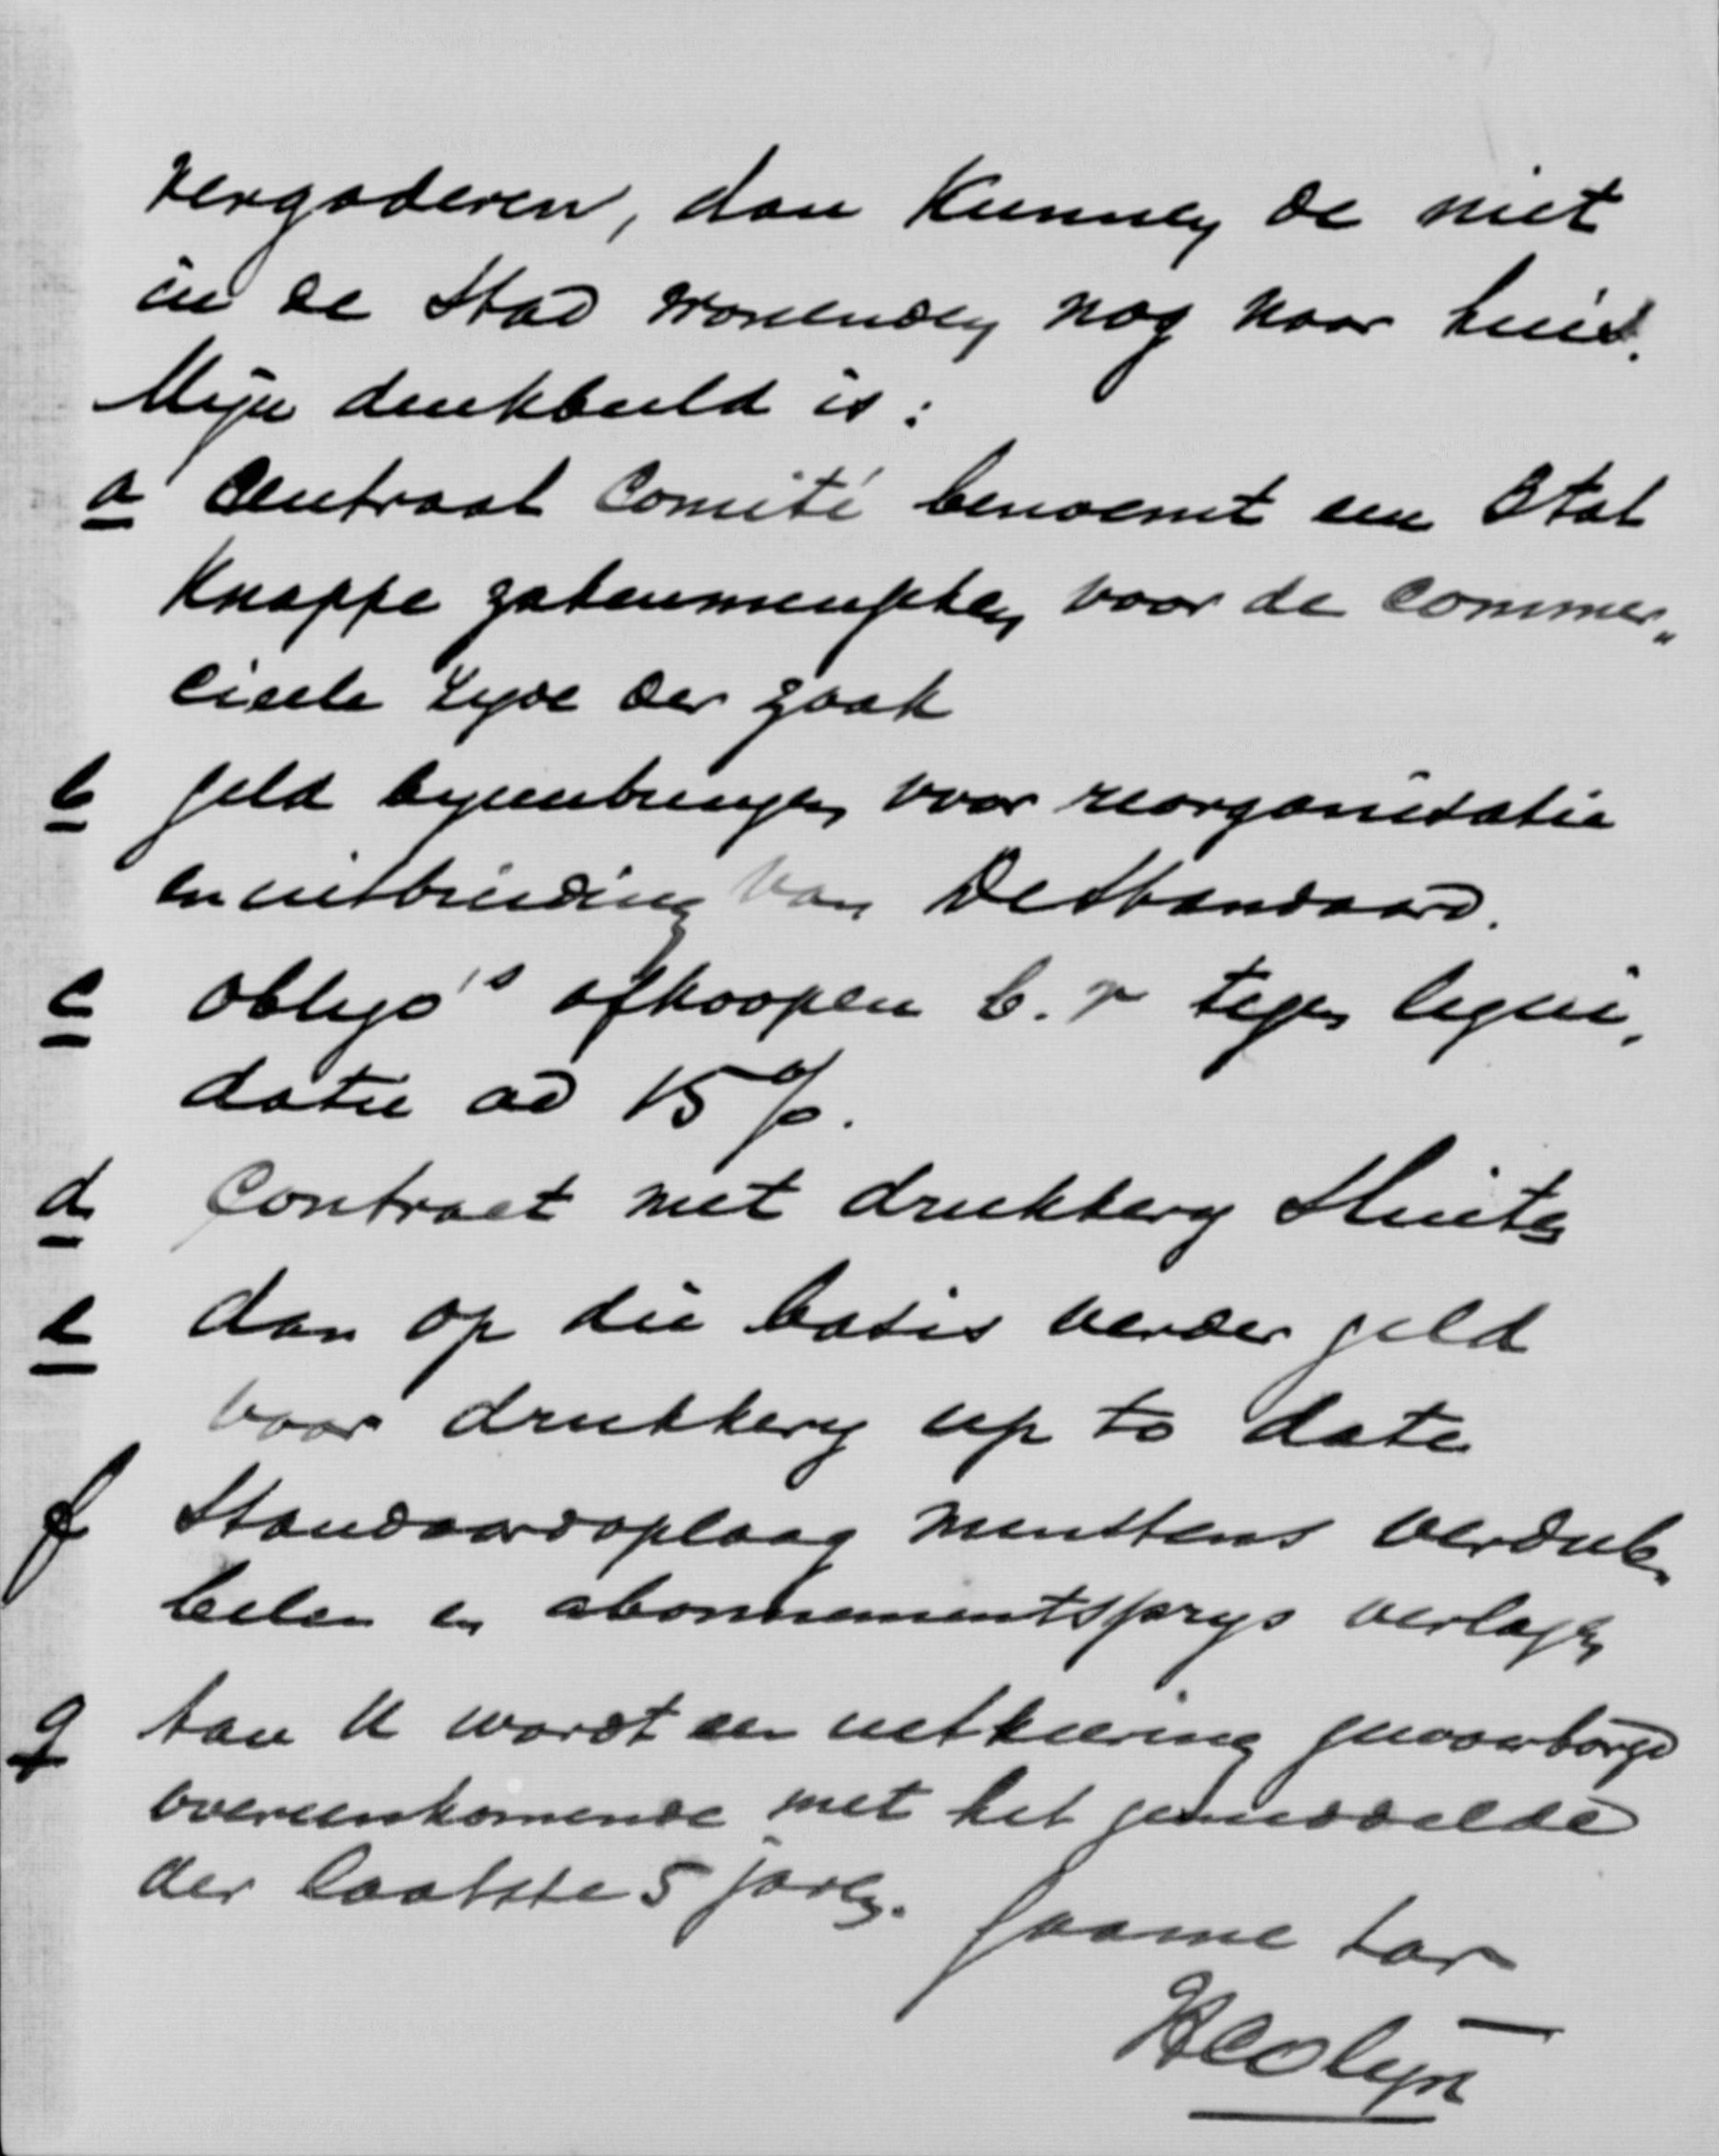 vergaderen, dan kunnen de niet
in de stad wonenden nog naar huis.
Mijn denkbeeld is:
a Centraal Comité benoemt een Stal
knappe zakenmenschen voor de commer„
cieele zyde der zaak
b geld byeenbrengen voor reorganisatie
en uitbreiding van De Standaard.
c obligo's afkoopen b.v tegen liqui„
datie ad 15%.
d Contract met drukkery sluiten
e dan op die basis verder geld
voor drukkery up to date
f Standaardoplaag minstens verdub„
belen en abonnementsprys verlagen
g aan U wordt een uitkeering gewaarborgd
overeenkomende met het gemiddelde
der laatste 5 jaren.
gaarne tav
HColijn